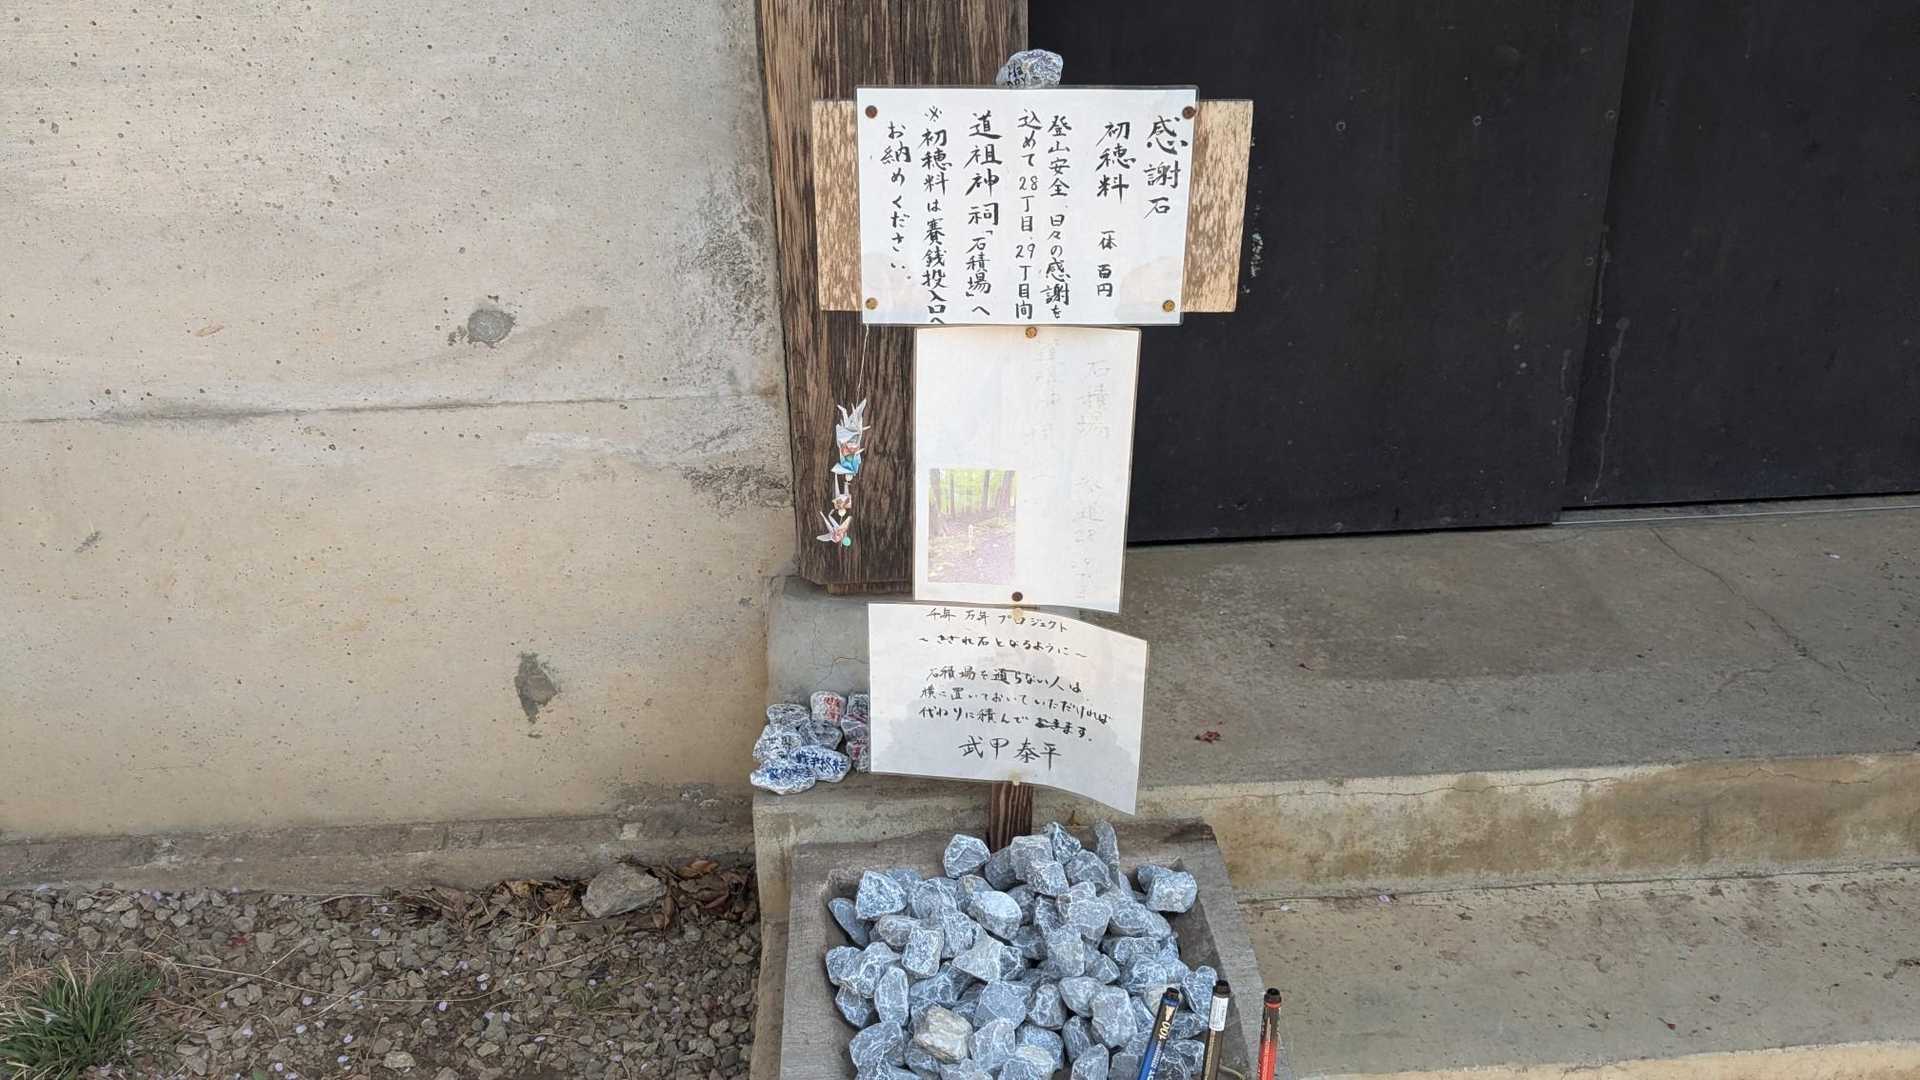 感謝石
初穂料 一体 百円
登山安全、日々の感謝を
込めて28丁目、29丁目間
道祖神祠「石積場」へ
※初穂料は賽銭投入口へ
お納めください。
石積場
千年 万年 プロジェクト
〜さざれ石となるように〜
石積場を通らない人は
横に置いておいていただければ
代わりに積んでおきます。
武甲泰平